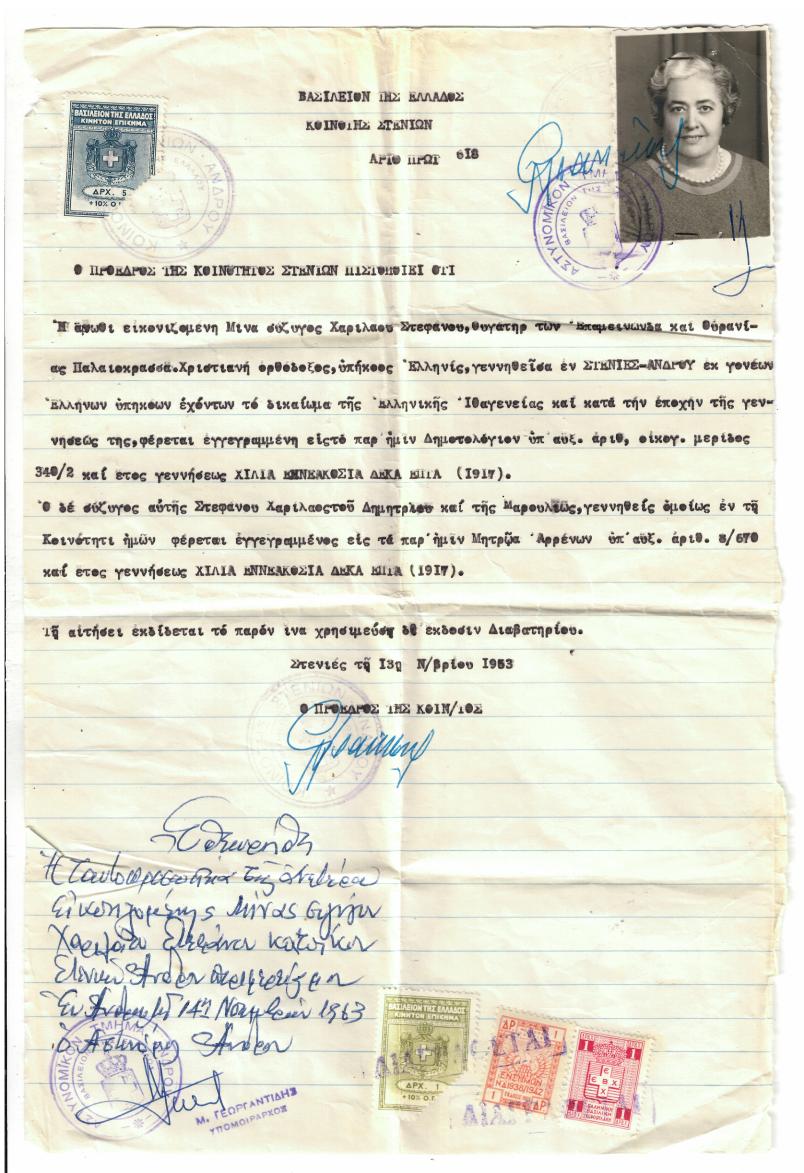 ΒΑΣΙΛΕΙΟΝ ΤΗΣ ΕΛΛΑΔΟΣ
ΚΟΙΝΟΤΗΣ ΣΤΕΝΙΩΝ
ΑΡΙΘ ΠΡΩΤ 618
ΒΑΣΙΛΕΙΟΝ ΤΗΣ ΕΛΛΑΔΟΣ
ΚΙΝΗΤΟΝ ΕΠΙΣΗΜΑ
ΔΡΧ. 5
+10% Ο.Γ
ΑΣΤΥΝΟΜΙΚΟΝ ΤΜΗΜΑ ΑΝΔΡΟΥ
ΒΑΣΙΛΕΙΟΝ ΤΗΣ
Ο ΠΡΟΕΔΡΟΣ ΤΗΣ ΚΟΙΝΟΤΗΤΟΣ ΣΤΕΝΙΩΝ ΠΙΣΤΟΠΟΙΕΙ ΟΤΙ
Ἡ ἄνωθι εἰκονιζομένη Μινα σύζυγος Χαριλαου Στεφάνου,θυγάτηρ των Ἐπαμεινωνδα και Θυρανί-
ας Παλαιοκρασσα.Χριστιανή ορθόδοξος,ὑπήκοος Ἑλληνίς,γεννηθεῖσα ἐν ΣΤΕΝΙΕΣ-ΑΝΔΡΟΥ ἐκ γονέων
Ἑλλήνων ὑπηκόων ἐχόντων τό δικαίωμα τῆς Ἑλληνικῆς Ἰθαγενείας καί κατά τήν ἐποχήν τῆς γεν-
νησεώς της,φέρεται ἐγγεγραμμένη εἰςτό παρ'ἡμῖν Δημοτολόγιον ὑπ'αυξ. ἀριθ, οἰκογ. μερίδος
340/2 καί ετος γεννήσεως ΧΙΛΙΑ ΕΝΝΕΑΚΟΣΙΑ ΔΕΚΑ ΕΠΤΑ (1917).
Ὁ δέ σύζυγος αὐτῆς Στεφάνου Χαρίλαοςτοῦ Δημητρίου καί τῆς Μαρουλιῶς,γεννηθείς ὁμοίως ἐν τῇ
Κοινότητι ἡμῶν φέρεται ἐγγεγραμμένος εἰς τά παρ'ἡμῖν Μητρῷα Ἀρρένων ὑπ'αὐξ. ἀριθ. 8/670
καί ετος γεννήσεως ΧΙΛΙΑ ΕΝΝΕΑΚΟΣΙΑ ΔΕΚΑ ΕΠΤΑ (1917).
Τῇ αἰτήσει ἐκδίδεται τό παρόν ινα χρησιμεύσῃ δἰ ἔκδοσιν Διαβατηρίου.
Στενιές τῇ 13ῃ Ν/βρίου 1963
Ο ΠΡΟΕΔΡΟΣ ΤΗΣ ΚΟΙΝ/ΤΟΣ
Ἐθεωρήθη
Χαριλάου Στεφάνου κατοίκου
Ἐν Ἄνδρῳ τῇ 14ῃ Νοεμβρίου 1963
Ὁ Ἀστυνόμος Ἄνδρου
ΑΣΤΥΝΟΜΙΚΟΝ ΤΜΗΜΑ ΑΝΔΡΟΥ
Μ. ΓΕΩΡΓΑΝΤΙΔΗΣ
ΥΠΟΜΟΙΡΑΡΧΟΣ
ΒΑΣΙΛΕΙΟΝ ΤΗΣ ΕΛΛΑΔΟΣ
ΚΙΝΗΤΟΝ ΕΠΙΣΗΜΑ
ΔΡΧ. 1
+10% Ο.Γ.
ΕΝΣΗΜΟΝ
ΝΔ 1938/1942
1 ΔΡ